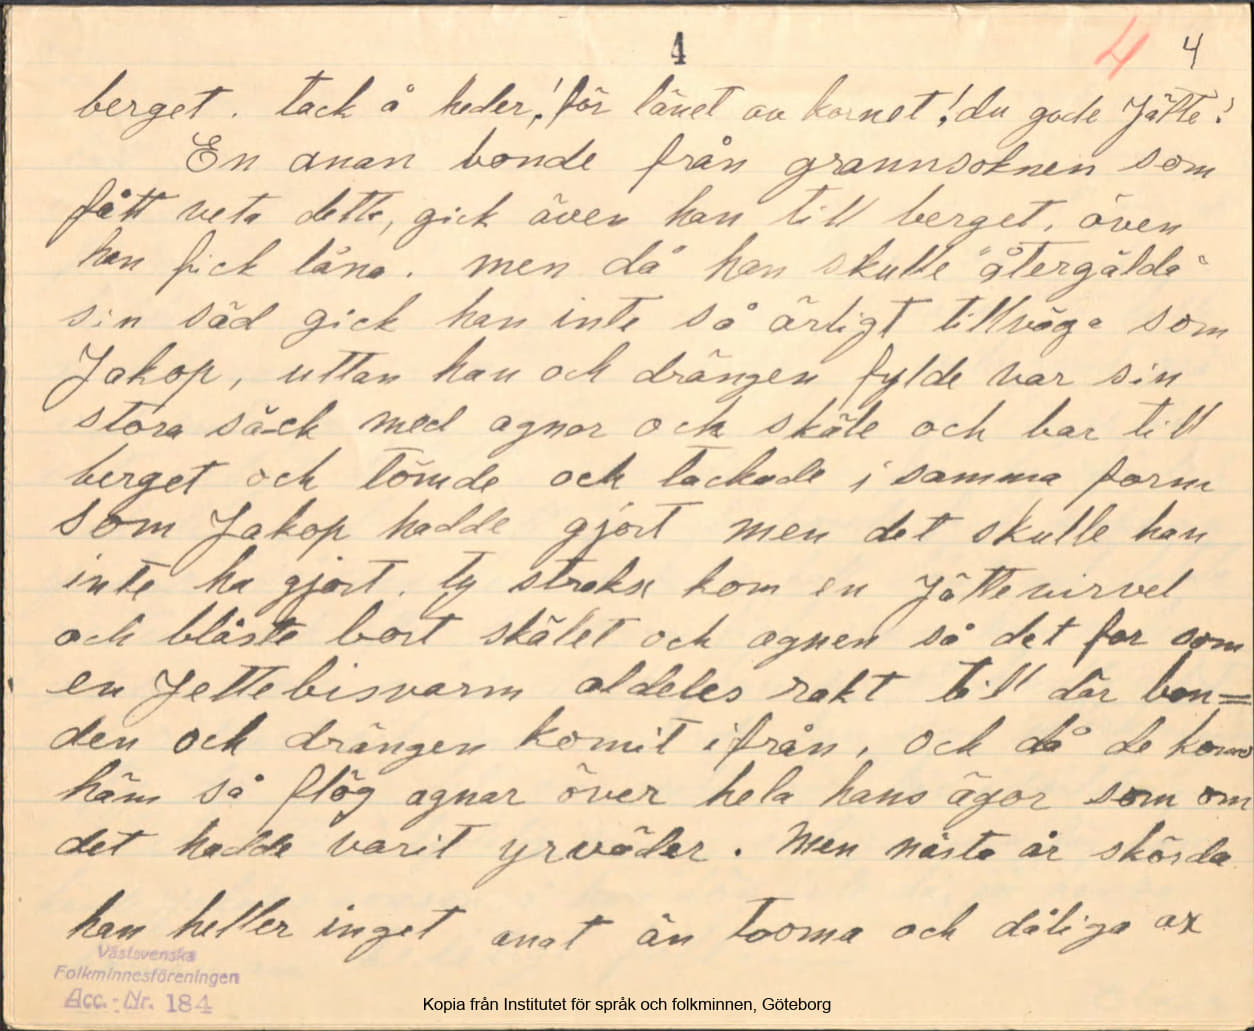 4
4 4
berget. tack å heder! för lånet av kornet! du gode Jätte!
En anan bonde från grannsoknen som
fått veta detta, gick även han till berget, även
han fick låna. men då han skulle "återgälda"
sin säd gick han inte så ärligt tillväga som
Jakop, uttan han och drängen fylde var sin
stora säck med agnar och skäle och bar till
berget och tömde och tackade i samma form
som Jakop hadde gjort men det skulle han
inte ha gjort. ty straks kom en Jättevirvel
och blåste bort skälet och agnen så det for som
en Jettebisvarm aldeles rakt till där bon=
den och drängen komit ifrån, och då de komo
häm så flög agnar över hela hans ägor som om
det hadde varit yrväder. Men nästa år skörda
han heller inget anat än tooma och dåliga ax
Västsvenska
Folkminnesföreningen
Acc.-Nr. 184
Kopia från Institutet för språk och folkminnen, Göteborg